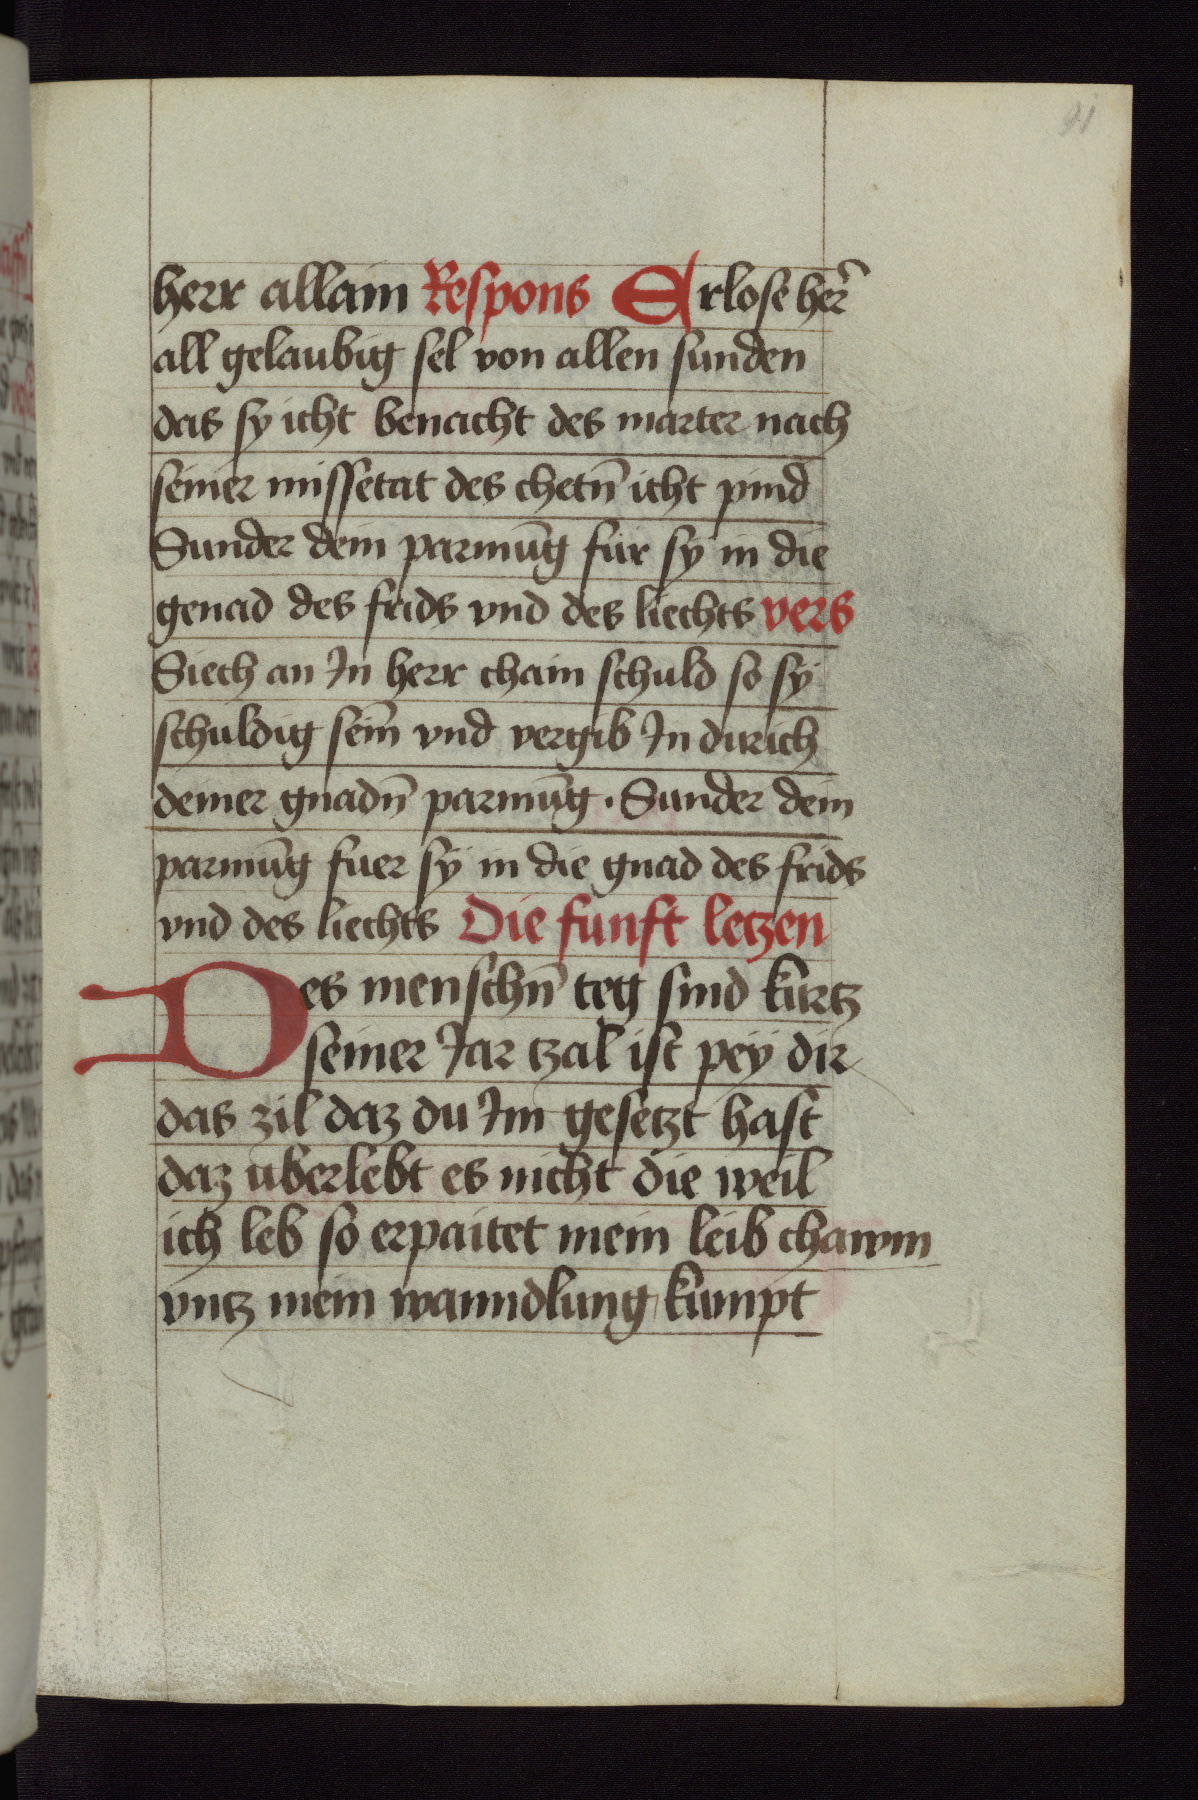 91
herr allain Respons Erlose her̃
all gelaubig sel von allen sunden
das sy icht benacht des marter nach
seiner missetat des chetn̄ icht pind
Sunder dein parmūg für sy in die
genad des frids vnd des liechts vers
Siech an Jn herr chain schuld so sÿ
schuldig sein̄ vnd vergib Jn durich
deiner gnadn̄ parmūg · Sunder dein
parmūg fuer sÿ in die gnad des frids
vnd des liechts Die funft letzen
Des menschn̄ teg sind kurtz
seiner Jar tzal ist peÿ dir
das zil daz du Jm gesetzt hast
daz uberlebt es nicht die weil
ich leb so erpaitet mein leib chawm
vntz mein wanndlung kumpt